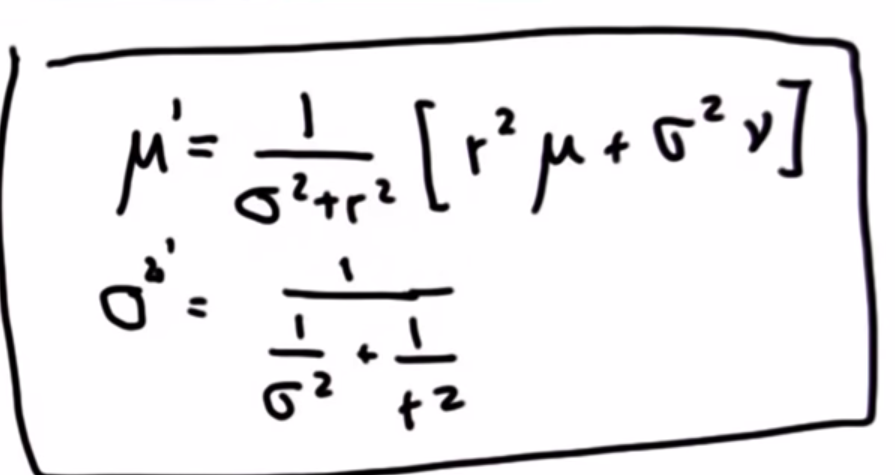 μ' = 1/(σ²+r²) [r²μ + σ²ν]
σ²' = 1/(1/σ² + 1/r²)